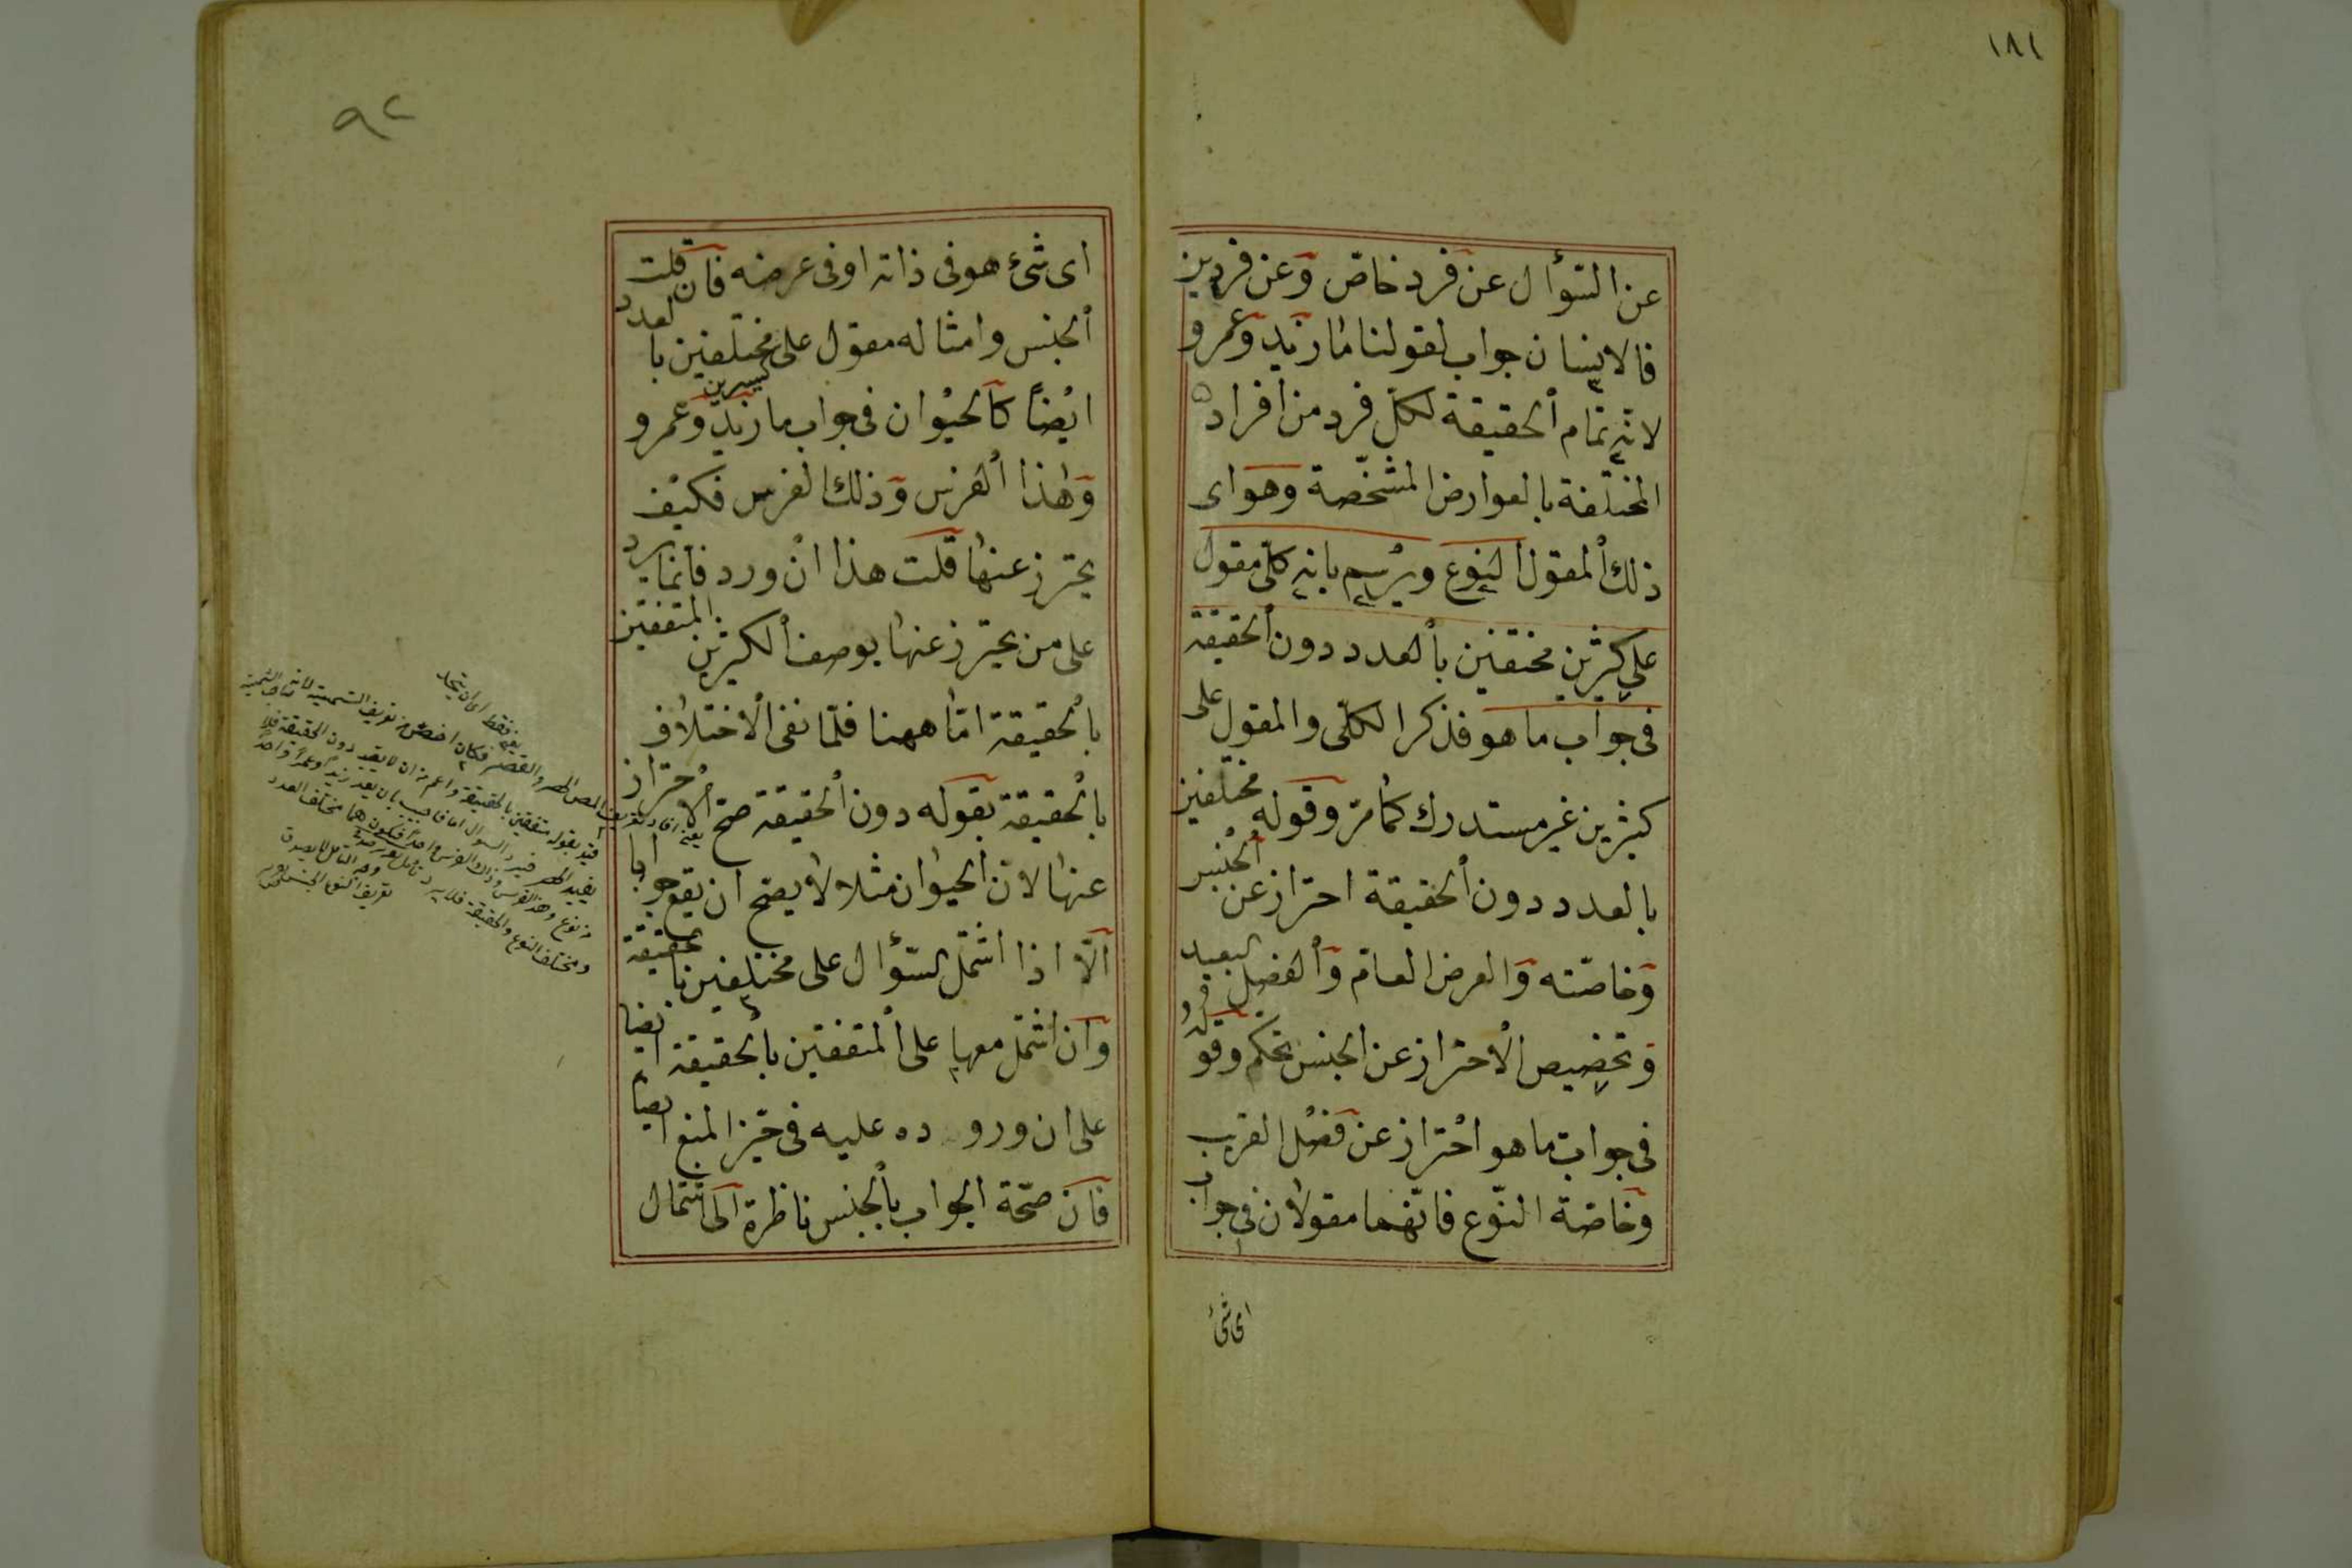 ١٨١
عن السّؤال عن فرد خاصّ وعن فردين
فالانسان جواب لقولنا ما زيد وعمرو
لانه تمام الحقيقة لكلّ فرد من افراده
المختلفة بالعوارض المشخّصة وهو اى
ذلك المقول النوع ويرسم بانه كلّى مقول
على كثيرين مختلفين بالعدد دون الحقيقة
فى جواب ما هو فذكر الكلّى والمقول على
كثيرين غير مستدرك كما مرّ وقوله مختلفين
بالعدد دون الحقيقة احتراز عن الجنس
وخاصّته والعرض العامّ والفصل البعيد
وتخصيص الاحتراز عن الجنس تحكم وقوله
فى جواب ما هو احتراز عن فصل القريب
وخاصّة النّوع فانّهما مقولان فى جواب
اى شئ
٩٢
اى شئ هو فى ذاته او فى عرضه فان قلت
الجنس وامثاله مقول على كثيرين مختلفين بالعدد
ايضاً كالحيوان فى جواب ما زيد وعمرو
وهذا الفرس وذلك الفرس فكيف
يحترز عنها قلت هذا ان ورد فانما يرد
على من يحترز عنها بوصف الكثيرين المتفقين
بالحقيقة امّا ههنا فلمّا نفى الاختلاف
بالحقيقة بقوله دون الحقيقة صحّ الاحتراز
عنها لان الحيوان مثلا لا يصحّ ان يقع جوابا
الّا اذا اشتمل السّؤال على مختلفين بالحقيقة
وان اشتمل معها على المتفقين بالحقيقة ايضا
على ان وروده عليه فى حيّز المنع ايضا
فان صحّة الجواب بالجنس ناظرة الى اشتمال